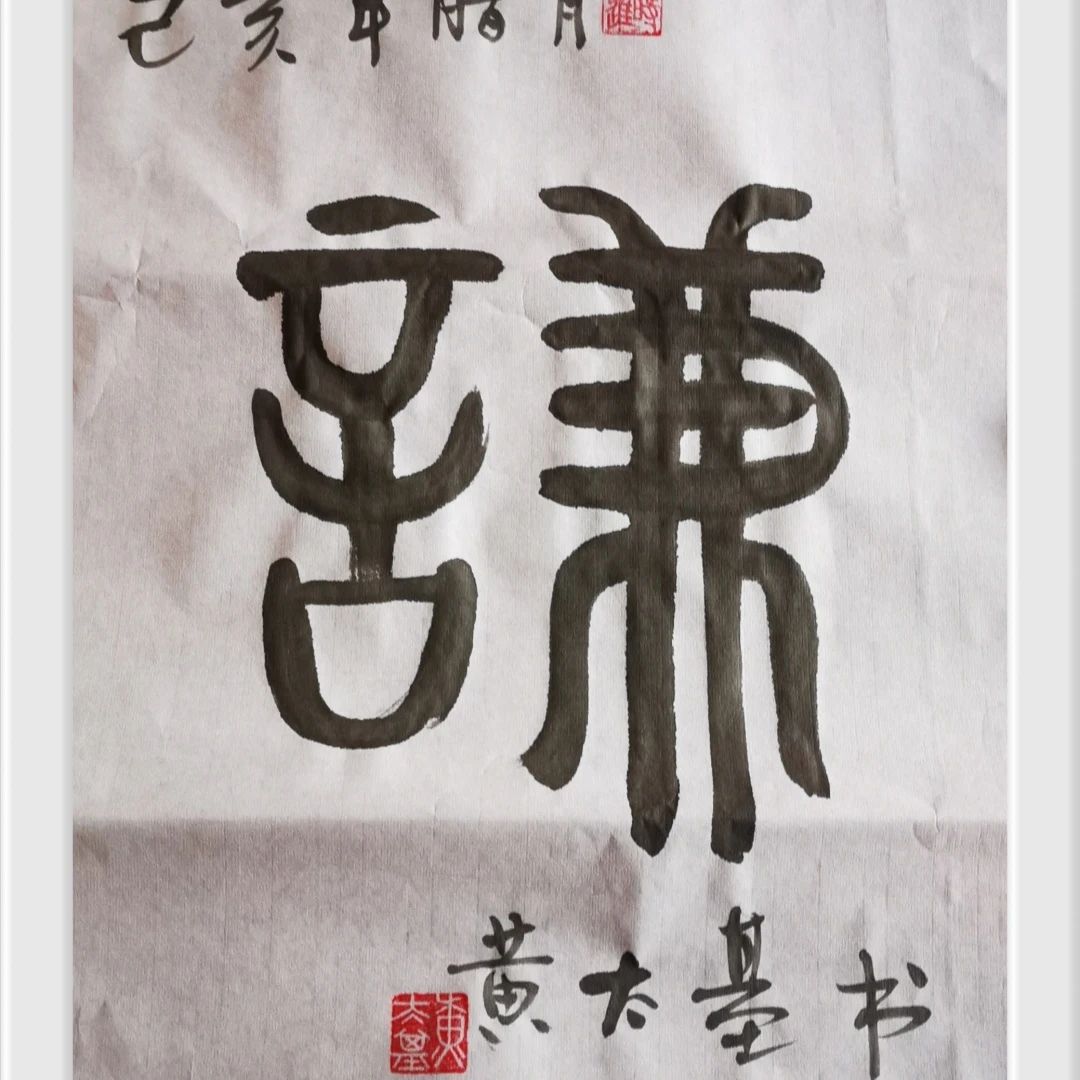 己亥年腊月
謙
黄太基书
黄太基